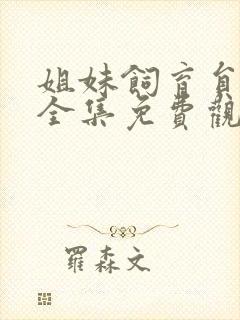 姐妹飼育自
全集免費觀
羅森文